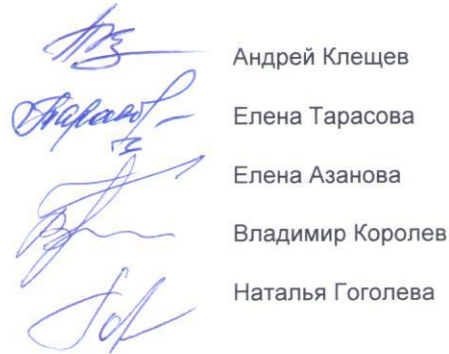 Андрей Клещев
Елена Тарасова
Елена Азанова
Владимир Королев
Наталья Гоголева